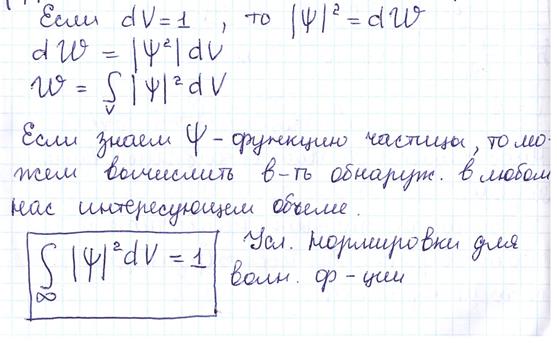 Если dV = 1 , то |Ψ|² = dW
dW = |Ψ²| dV
W = ∫_V |Ψ|² dV
Если знаем Ψ - функцию частицы, то мо-
жем вычислить в-ть обнаруж. в любом
нас интересующем объеме.
∫_∞ |Ψ|² dV = 1 Усл. нормировки для
волн. ф - ции